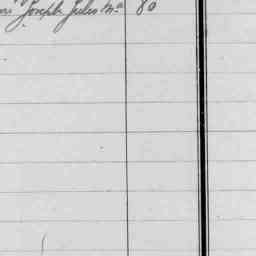 Joseph Jules Mᵉ 80